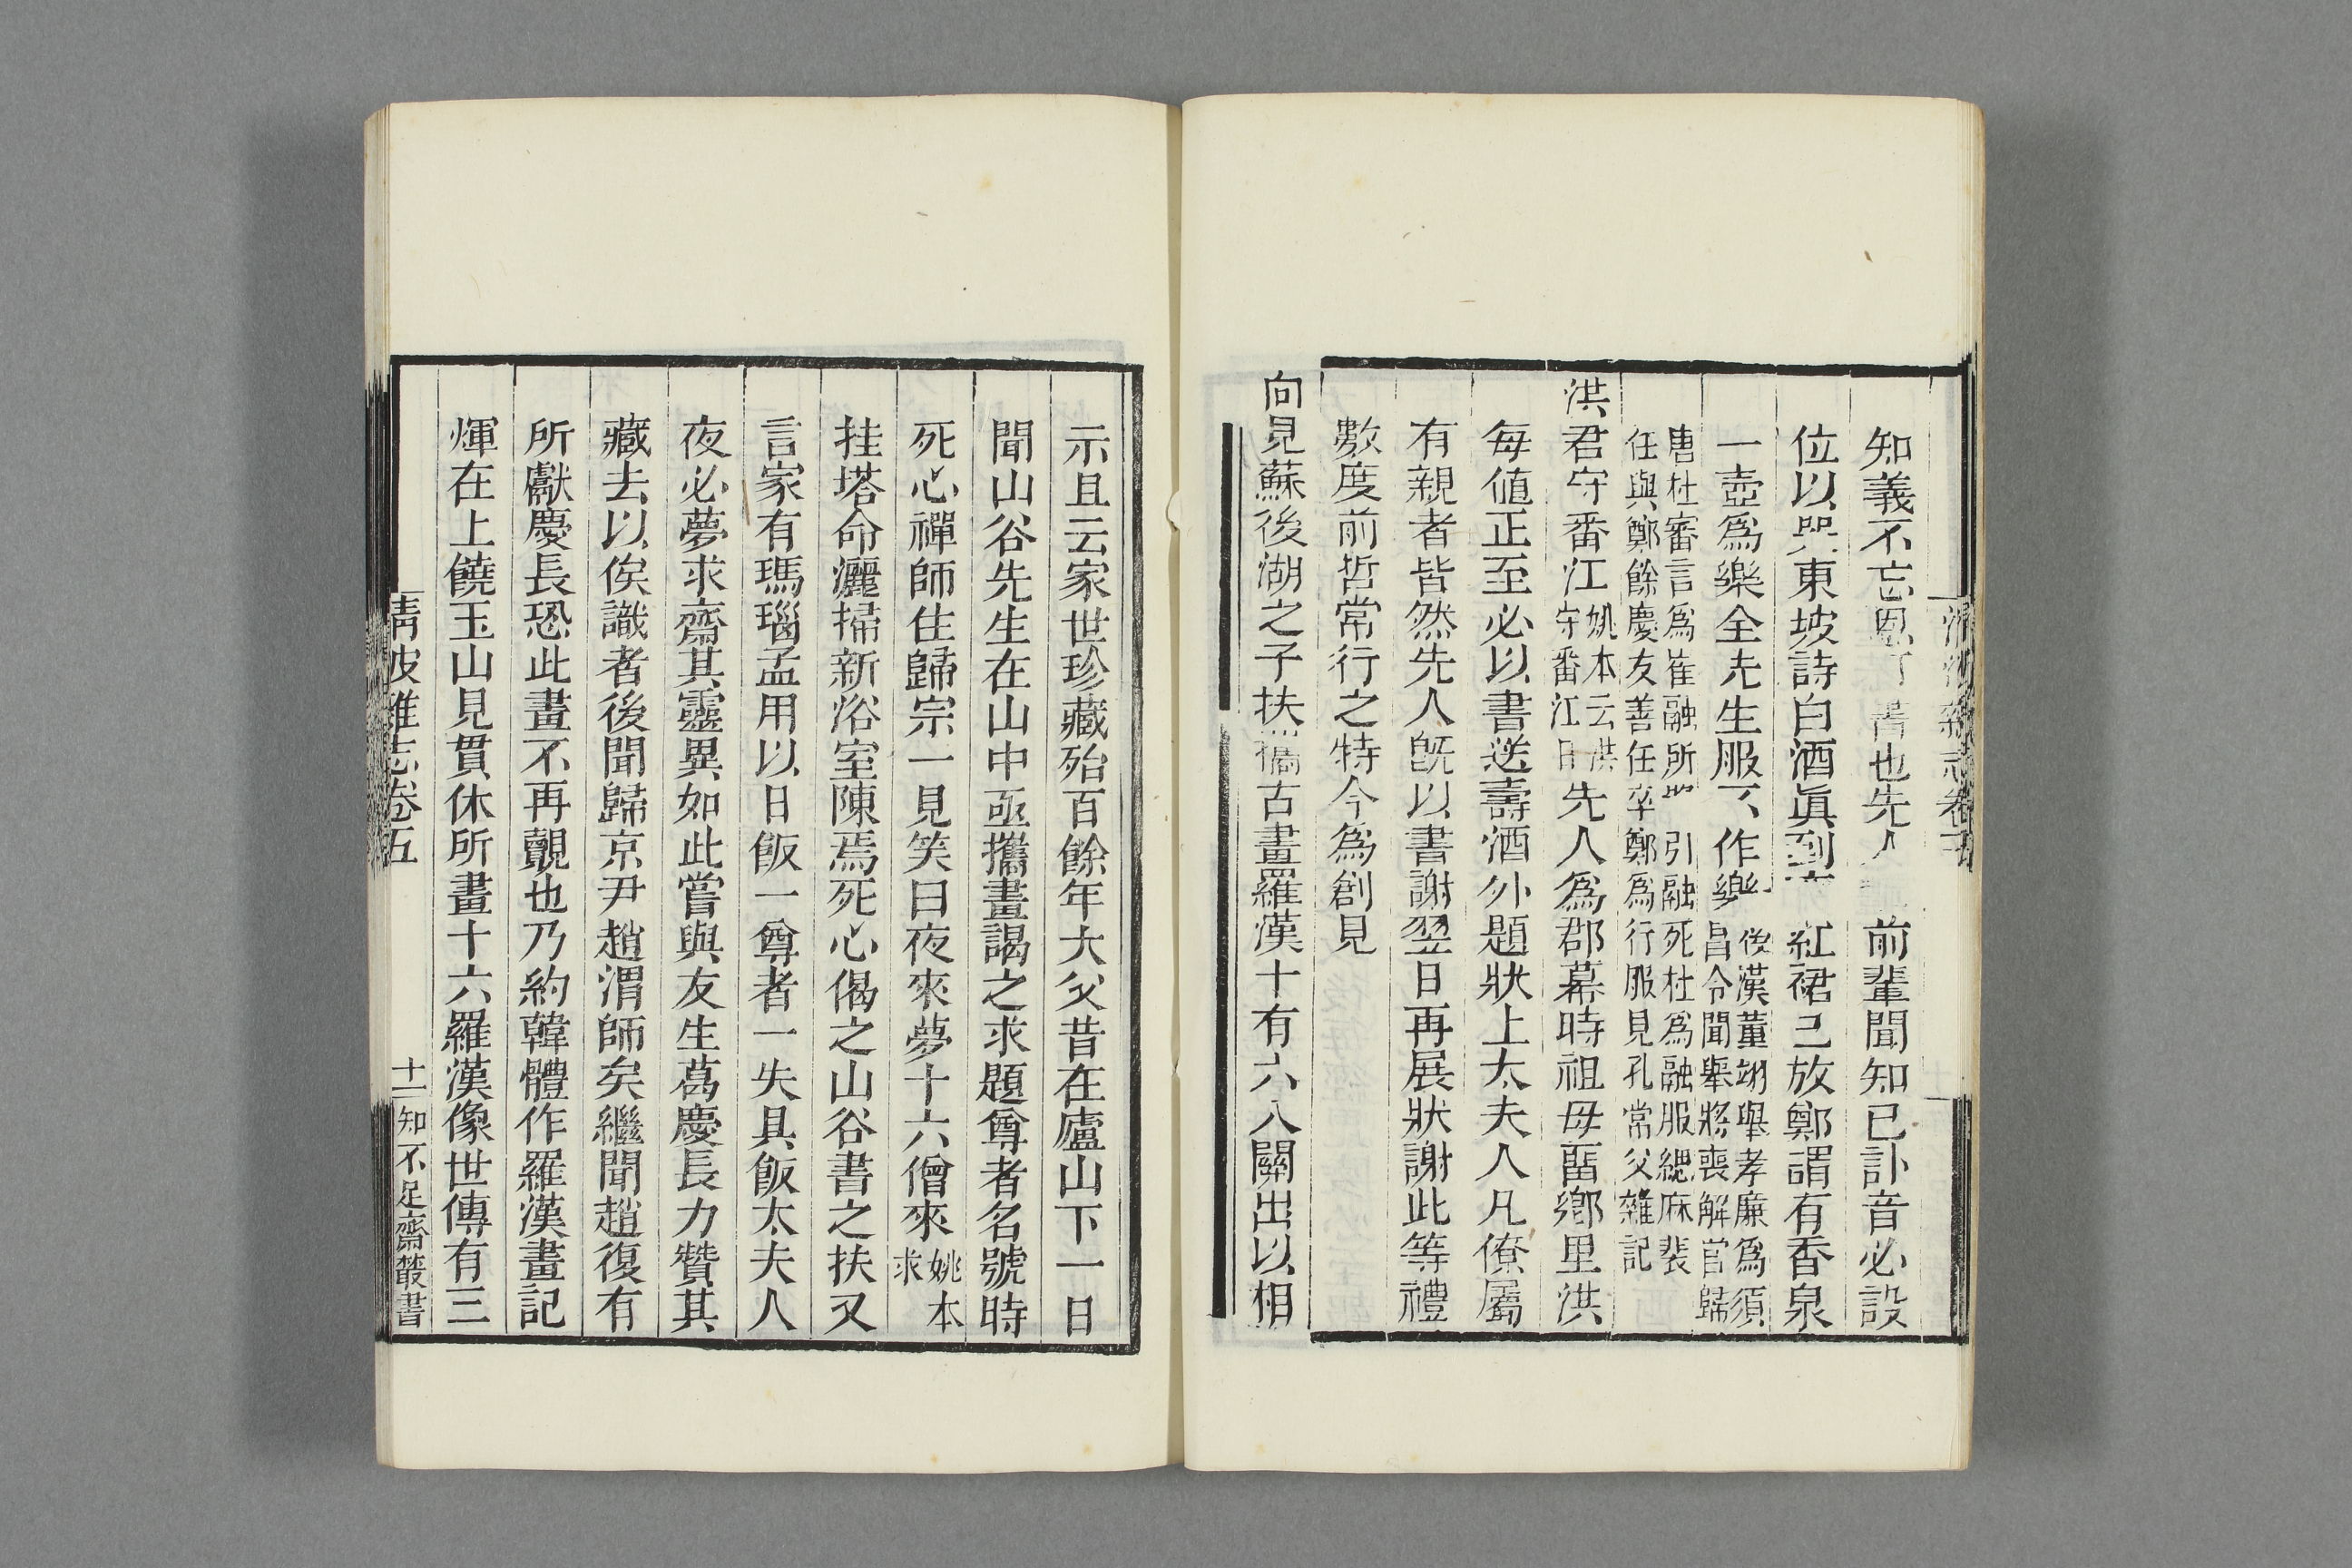 知義不忘恩 者也先人 前輩聞知已訃音必設
位以哭東坡詩白酒眞到 紅裙已放鄭謂有香泉
一壺爲樂全先生服不作樂 後漢董翊舉孝廉爲須
昌令聞舉將喪解官歸
唐杜審言爲崔融所 引融死杜爲融服緦麻裴
任與鄭餘慶友善任卒鄭爲行服見孔常父雜記
洪君守番江 姚本云洪
守番江日 先人爲郡幕時祖母畱鄉里洪
每値正至必以書送壽酒外題狀上太夫人凡僚屬
有親者皆然先人旣以書謝翌日再展狀謝此等禮
數度前哲常行之特今爲創見
向見蘇後湖之子扶攜古畫羅漢十有六八關出以相
示且云家世珍藏殆百餘年大父昔在廬山下一日
聞山谷先生在山中亟攜畫謁之求題尊者名號時
死心禪師住歸宗一見笑曰夜來夢十六僧來 姚本
求
挂塔命灑掃新浴室陳焉死心偈之山谷書之扶又
言家有瑪瑙盂用以日飯一尊者一失具飯太夫人
夜必夢求齋其靈異如此嘗與友生葛慶長力贊其
藏去以俟識者後聞歸京尹趙渭師矣繼聞趙復有
所獻慶長恐此畫不再覿也乃約韓體作羅漢畫記
煇在上饒玉山見貫休所畫十六羅漢像世傳有三
清波雜志卷五 十一 知不足齋叢書